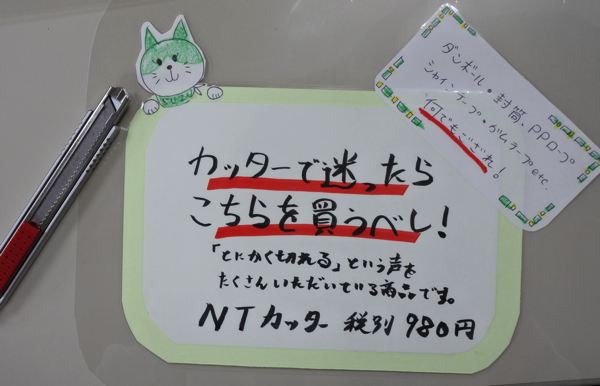 ダンボール・封筒、PPロープ
シャインテープ・ガムテープetc.
何でもござれ!
カッターで迷ったら
こちらを買うべし!
「とにかく切れる」という声を
たくさんいただいている商品です。
NTカッター 税別 980円